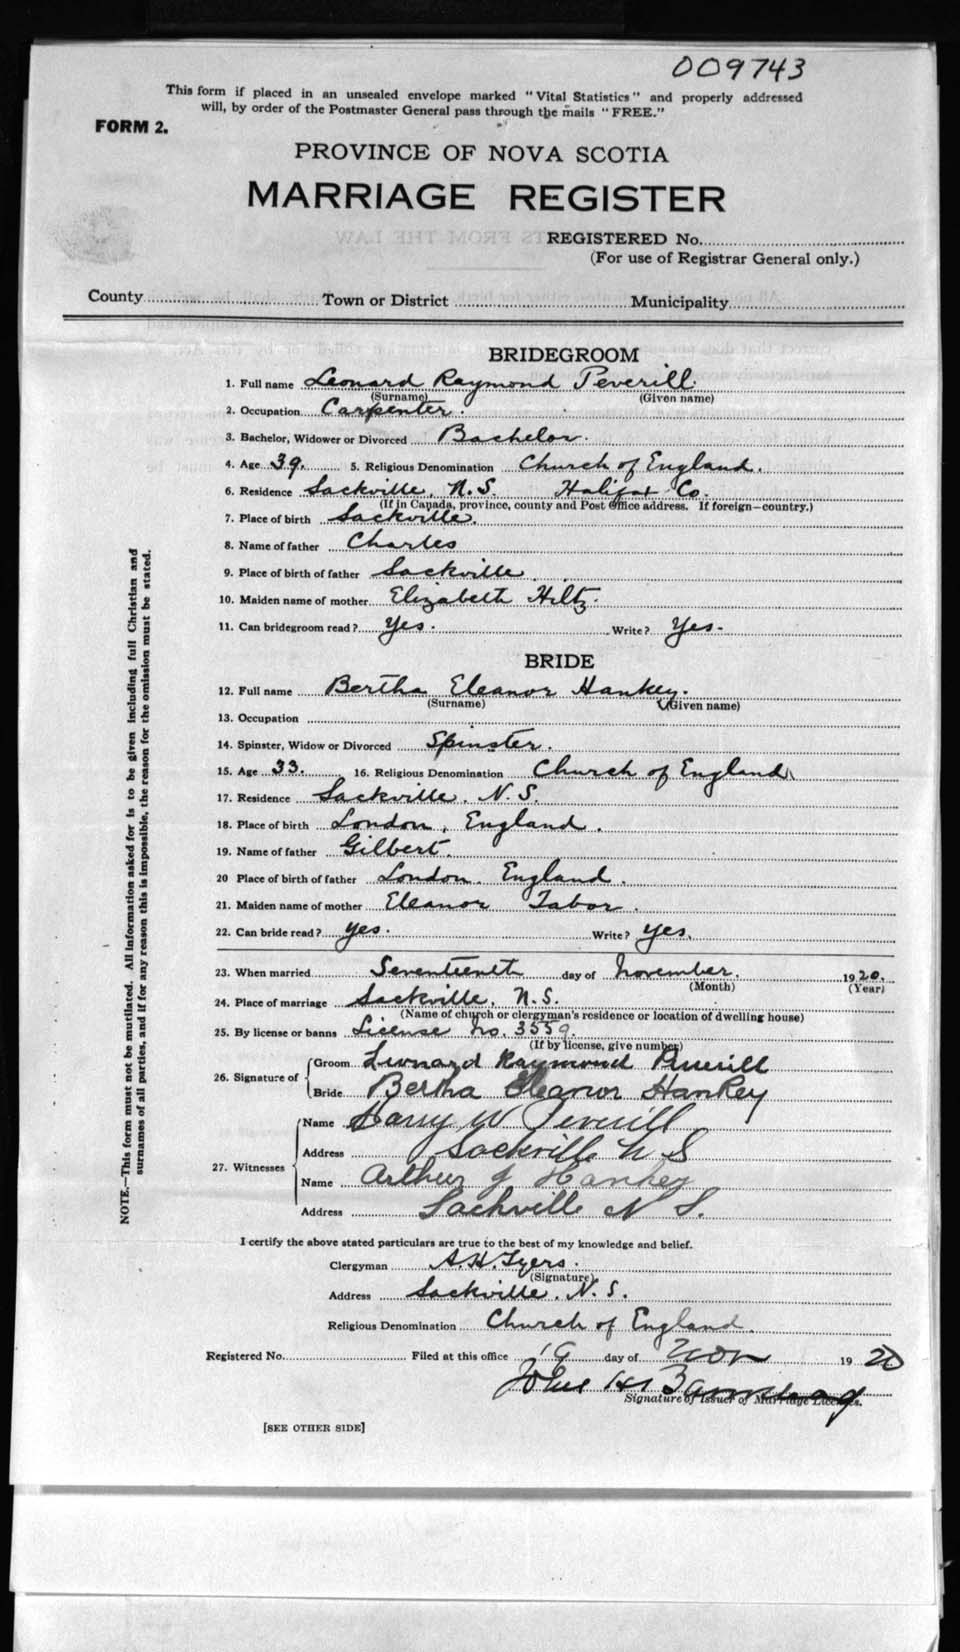 009743
This form if placed in an unsealed envelope marked "Vital Statistics" and properly addressed
will, by order of the Postmaster General pass through the mails "FREE."
FORM 2.
PROVINCE OF NOVA SCOTIA
MARRIAGE REGISTER
REGISTERED No.
(For use of Registrar General only.)
County Town or District Municipality
BRIDEGROOM
1. Full name Leonard Raymond Peverill
(Surname) (Given name)
2. Occupation Carpenter.
3. Bachelor, Widower or Divorced Bachelor.
4. Age 39. 5. Religious Denomination Church of England.
6. Residence Sackville, N.S. Halifax Co.
(If in Canada, province, county and Post Office address. If foreign—country.)
7. Place of birth Sackville.
8. Name of father Charles
9. Place of birth of father Sackville
10. Maiden name of mother Elizabeth Hiltz.
11. Can bridegroom read? Yes. Write? Yes.
BRIDE
12. Full name Bertha Eleanor Hankey.
(Surname) (Given name)
13. Occupation
14. Spinster, Widow or Divorced Spinster.
15. Age 33. 16. Religious Denomination Church of England
17. Residence Sackville, N.S.
18. Place of birth London, England.
19. Name of father Gilbert.
20 Place of birth of father London. England.
21. Maiden name of mother Eleanor Tabor.
22. Can bride read? Yes. Write? Yes.
23. When married Seventeenth day of November. 1920.
(Month) (Year)
24. Place of marriage Sackville, N.S.
(Name of church or clergyman's residence or location of dwelling house)
25. By license or banns License No. 3559.
(If by license, give number)
26. Signature of Groom Leonard Raymond Peverill
Bride Bertha Eleanor Hankey
27. Witnesses Name Harry W Peverill
Address Sackville N S
Name Arthur J Hankey
Address Sackville N S.
I certify the above stated particulars are true to the best of my knowledge and belief.
Clergyman A.H. Tyers.
(Signature)
Address Sackville, N.S.
Religious Denomination Church of England.
Registered No. Filed at this office 19 day of Nov 1920
John
Signature of Issuer of Marriage Licenses.
[SEE OTHER SIDE]
NOTE.—This form must not be mutilated. All information asked for is to be given including full Christian and
surnames of all parties, and if for any reason this is impossible, the reason for the omission must be stated.